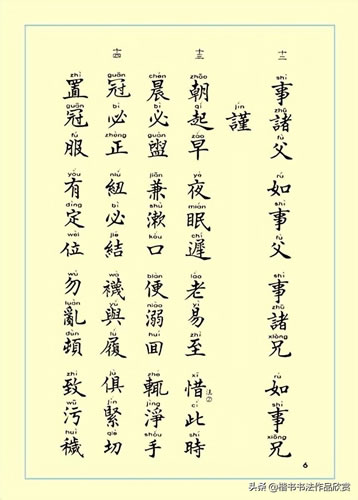 十二
shì 事 zhū 諸 fù 父 rú 如 shì 事 fù 父 shì 事 zhū 諸 xiōng 兄 rú 如 shì 事 xiōng 兄
jǐn 謹
十三
zhāo 朝 qǐ 起 zǎo 早 yè 夜 mián 眠 chí 遲 lǎo 老 yì 易 zhì 至 xī 惜 cǐ 此 shí 時
chén 晨 bì 必 guàn 盥 jiān 兼 shù 漱 kǒu 口 biàn 便 niào 溺 huí 囬 zhé 輒 jìng 淨 shǒu 手
十四
guān 冠 bì 必 zhèng 正 niǔ 紐 bì 必 jié 結 wà 襪 yǔ 與 lǚ 履 jù 俱 jǐn 緊 qiè 切
zhì 置 guān 冠 fú 服 yǒu 有 dìng 定 wèi 位 wù 勿 luàn 亂 dùn 頓 zhì 致 wū 污 huì 穢
6
头条 @楷书书法作品欣赏